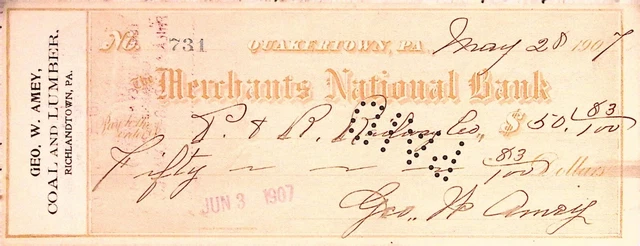 GEO. W. AMEY,
COAL AND LUMBER.
RICHLANDTOWN, PA.
No. 731 QUAKERTOWN, PA. May 28 1907
The Merchants National Bank
Pay to the order of P. & R. Railway Co., $50.83/100
Fifty 83/100 Dollars
JUN 3 1907
Geo. W Amey
PAID